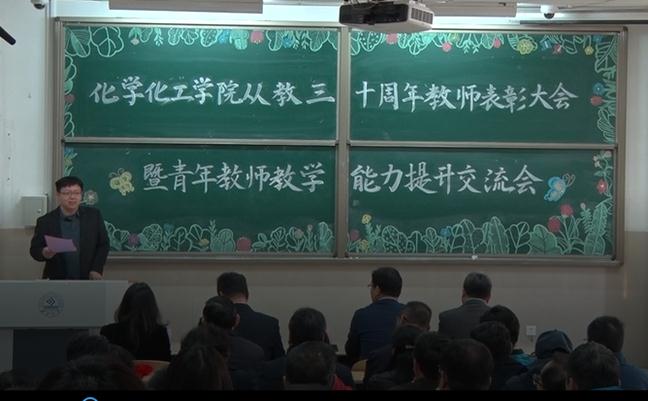 化学化工学院从教三十周年教师表彰大会
暨青年教师教学能力提升交流会